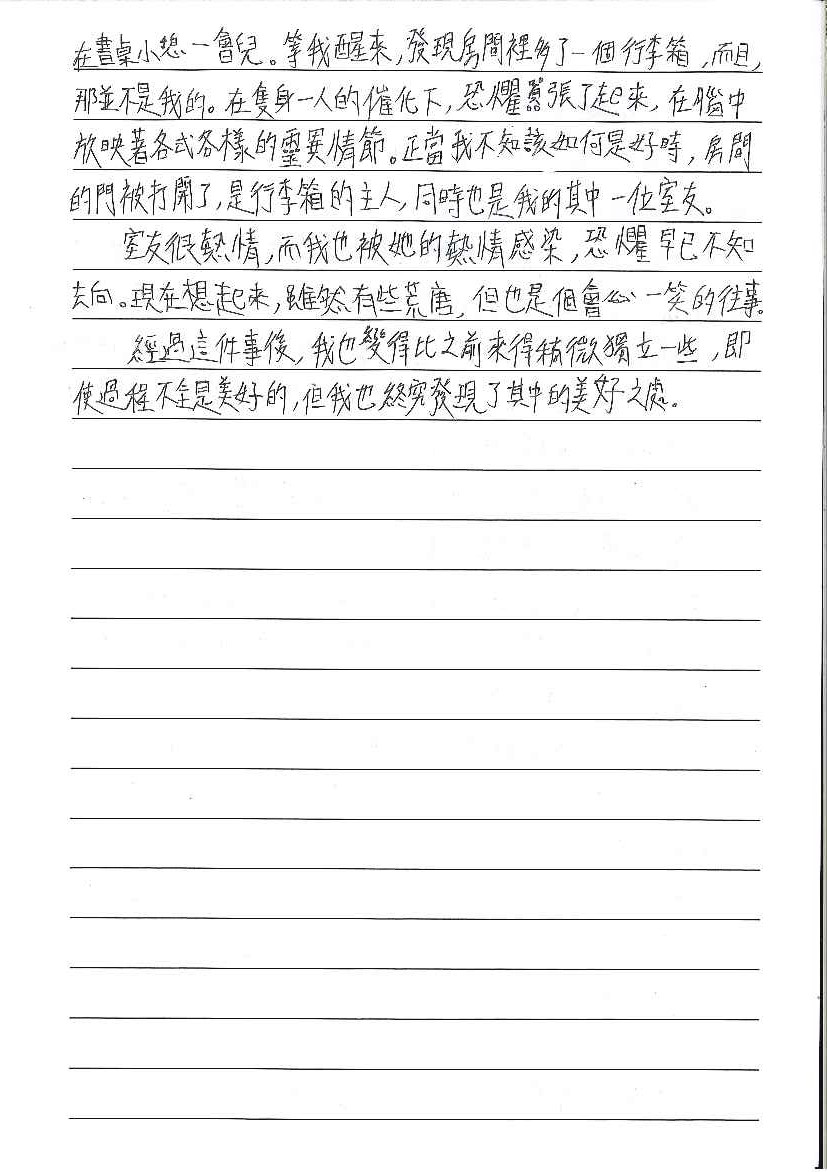 在書桌小憩一會兒。等我醒來，發現房間裡多了一個行李箱，而且，
那並不是我的。在隻身一人的催化下，恐懼囂張了起來，在腦中
放映著各式各樣的靈異情節。正當我不知該如何是好時，房間
的門被打開了，是行李箱的主人，同時也是我的其中一位室友。
室友很熱情，而我也被她的熱情感染，恐懼早已不知
去向。現在想起來，雖然有些荒唐，但也是個會心一笑的往事。
經過這件事後，我也變得比之前來得稍微獨立一些，即
使過程不全是美好的，但我也終究發現了其中的美好之處。